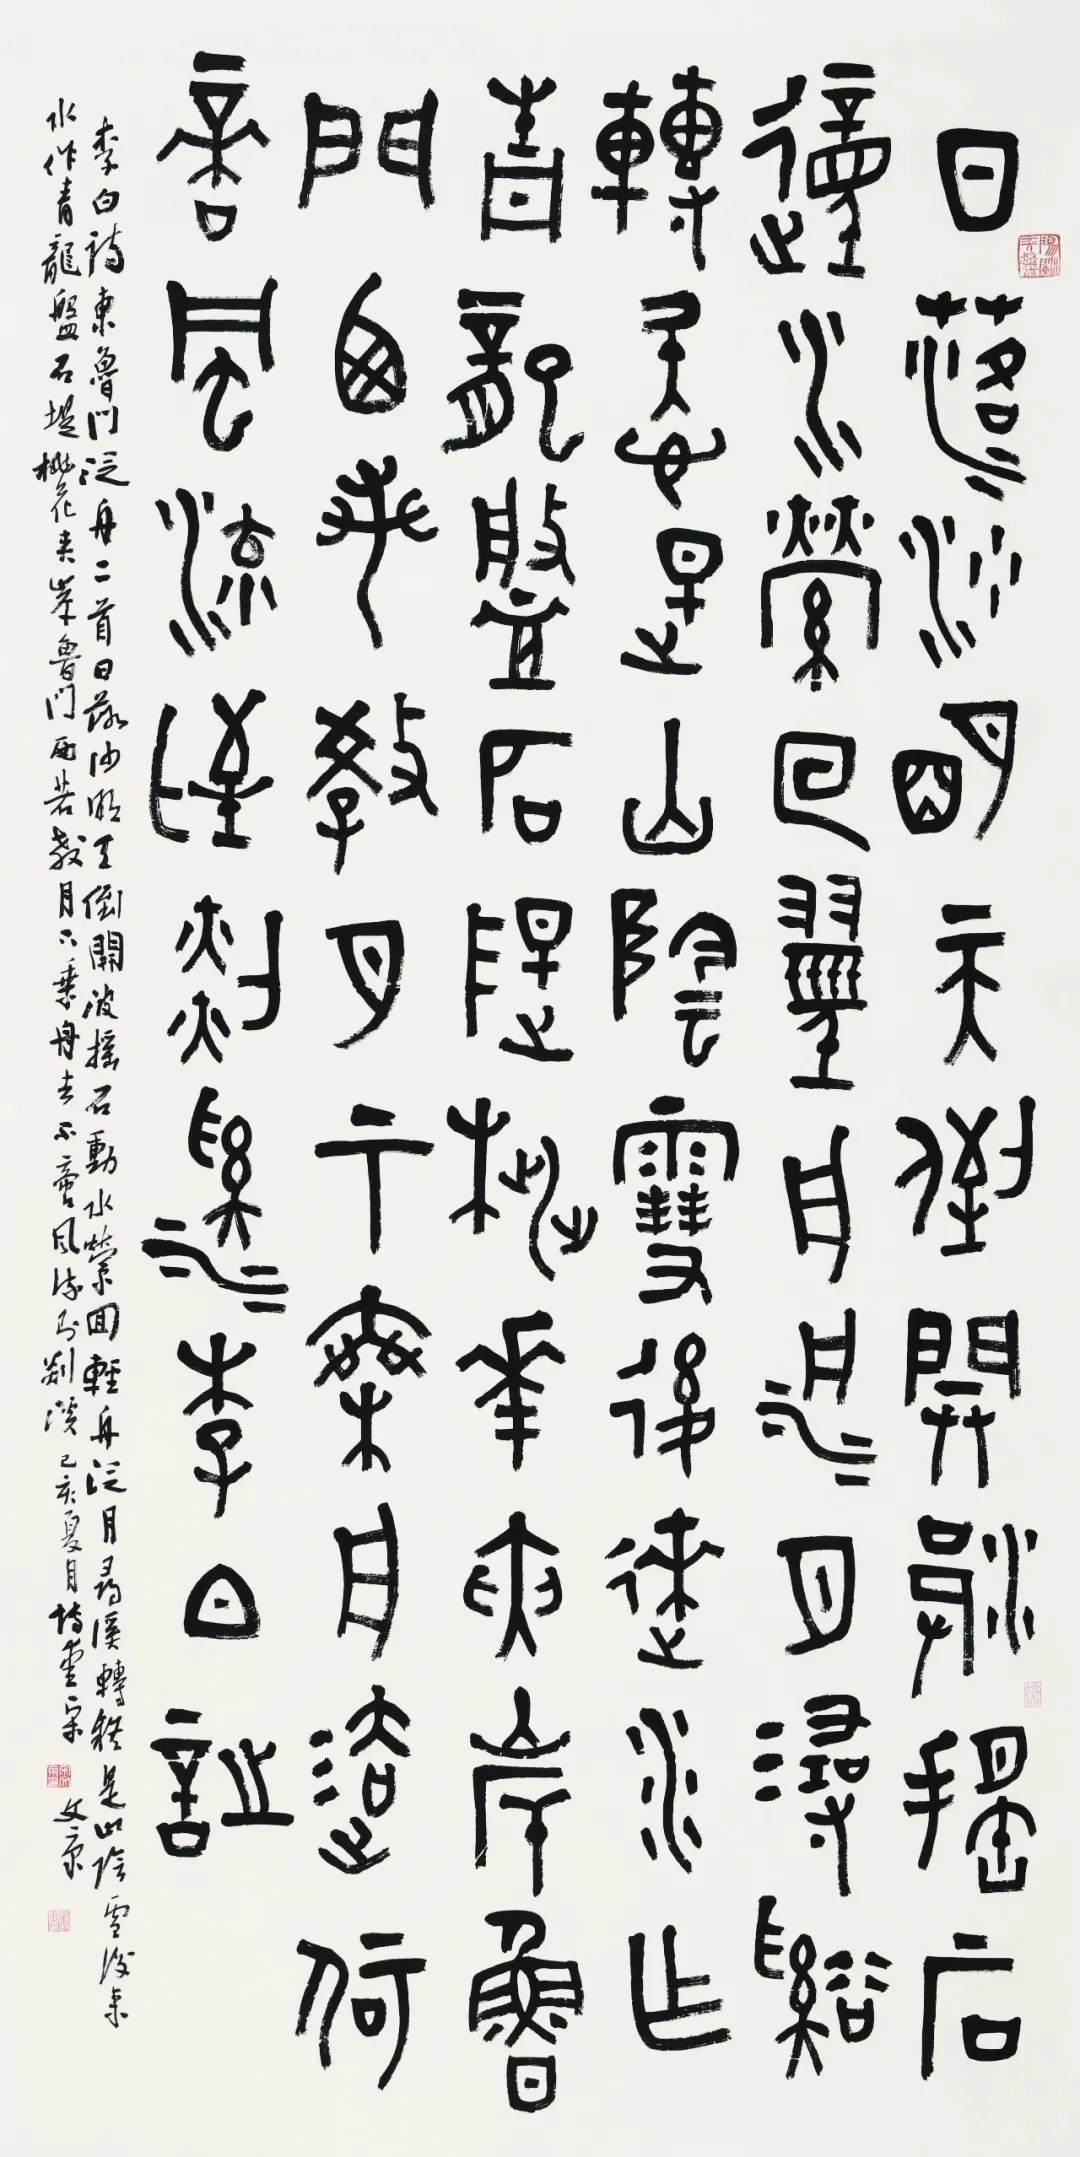 日落沙明天倒開波搖石
動水縈回輕舟泛月尋溪
轉疑是山陰雪後來水作
青龍盤石堤桃花夾岸魯
門西若教月下乘舟去何
啻風流到剡溪李白詩
李白詩東魯門泛舟二首日落沙明天倒開波搖石動水縈回輕舟泛月尋溪轉疑是山陰雪後來
水作青龍盤石堤桃花夾岸魯門西若教月下乘舟去不啻風流到剡溪己亥夏月宋文京